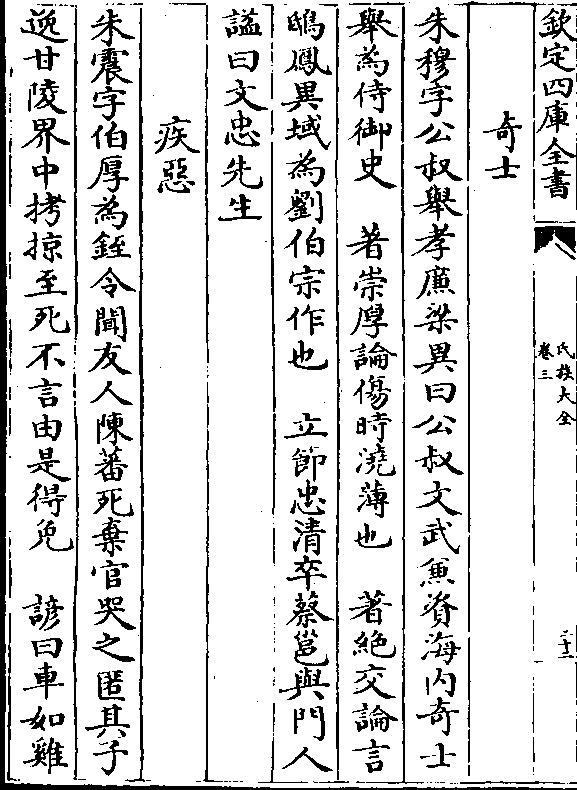 欽定四庫全書
氏族大全
卷三
二十二
奇士
朱穆字公叔舉孝廉梁異曰公叔文武兼資海内奇士
舉為侍御史　著崇厚論傷時澆薄也　著絶交論言
鴟鳳異域為劉伯宗作也　立節忠清卒蔡邕與門人
謚曰文忠先生
疾惡
朱震字伯厚為銍令聞友人陳蕃死棄官哭之匿其子
逸甘陵界中拷掠至死不言由是得免　諺曰車如雞